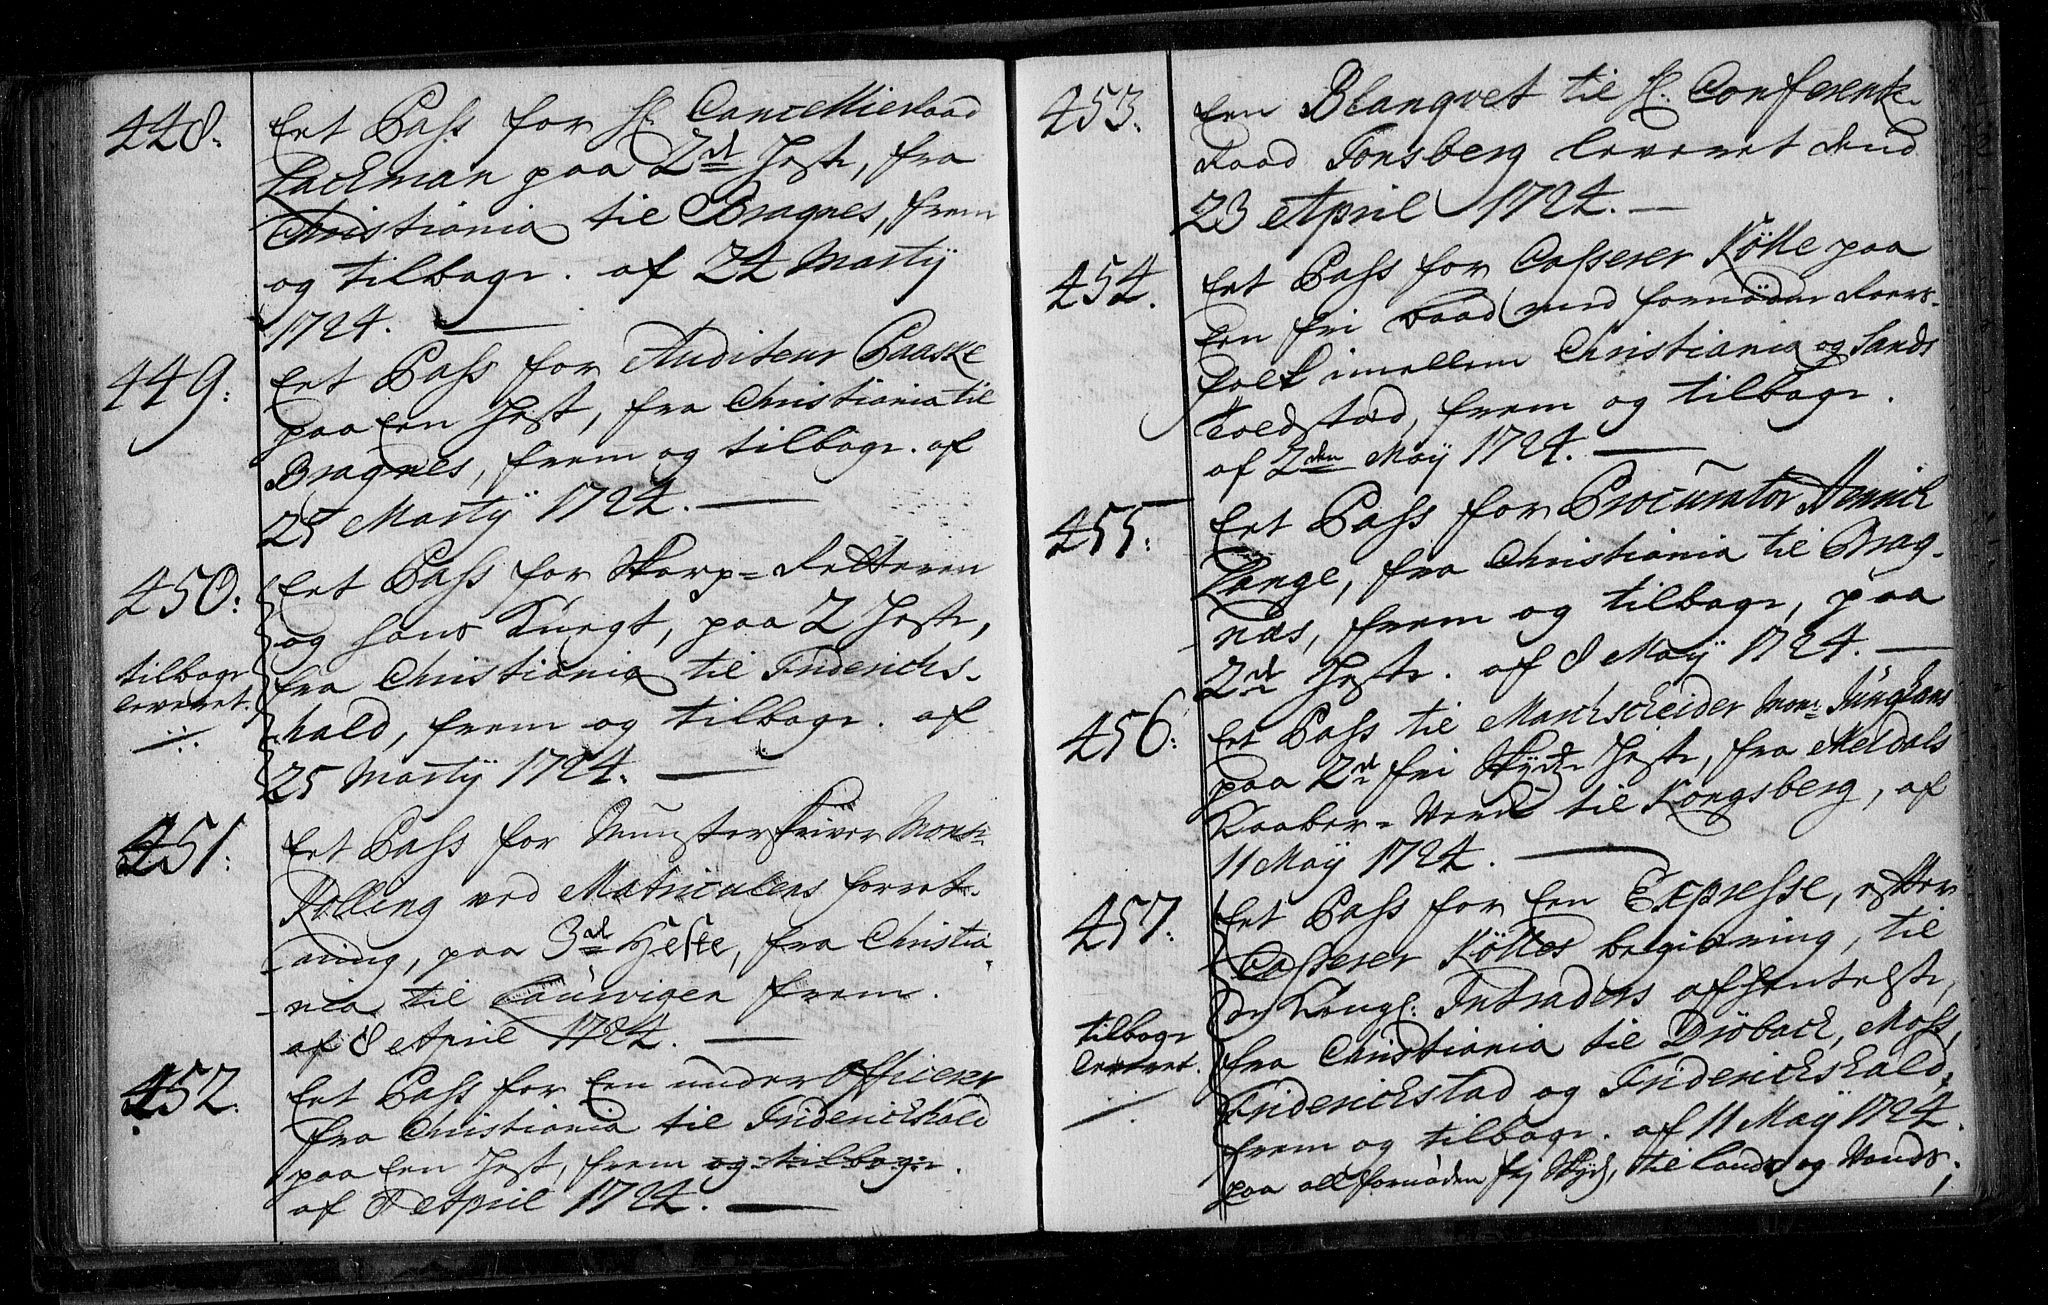 448.
Eet Pass for H. Cancellieraad
Lackman paa 2de Heste, fra
Christiania til Bragnes, frem
og tilbage. af 24 Martÿ
1724.
449:
Eet Pass for Auditeur Paaske
paa een Hest, fra Christiania til
Bragnes, frem og tilbage. af
25 Martÿ 1724.
450:
Eet Pass for Skarp=Retteren
og hans Knegt, paa 2 Heste,
fra Christiania til Friderichs-
hald, frem og tilbage. af
25 Martÿ 1724.
tilbage
leveret.
451:
Eet Pass for Munsterskriver Monsr
Kolling ved Matriculens forret-
ning, paa 3de Heste, fra Christia-
nia til Laurvigen frem.
af 8 April 1724.
452:
Eet Pass for Een underOfficerer
fra Christiania til Friderichshald
paa Een Hest, frem og tilbage.
af 8 April 1724.
453.
Een Blanqvet til H. Conferentz-
Raad Tonsberg leveret dend
23 April 1724.
454.
Eet Pass for Casserer Kölle paa
Een fri baad med fornöden Roers-
folk imellem Christiania og Sands
Toldstæd, frem og tilbage.
af 2den Maÿ 1724.
455:
Eet Pass for Procurator
Lange, fra Christiania til Brag-
næs, frem og tilbage, paa
2de Heste. af 8 Maÿ 1724.
456:
Eet Pass til Marchscheider Monsr Junghans
paa 2de fri Skyds Heste, fra Meldals
Kaaber=Verk til Kongsberg, af
11 Maÿ 1724.
457:
Eet Pass for Een Expresse, efter
Casserer Kölles begiering, til
de Kongl: Intraders afhentelse,
fra Christiania til Dröback, Moss,
Friderichstad og Friderichshald,
frem og tilbage. af 11 Maÿ 1724.
paa all fornöden frj Skyds, til lands og Vands;
tilbage
leveret.